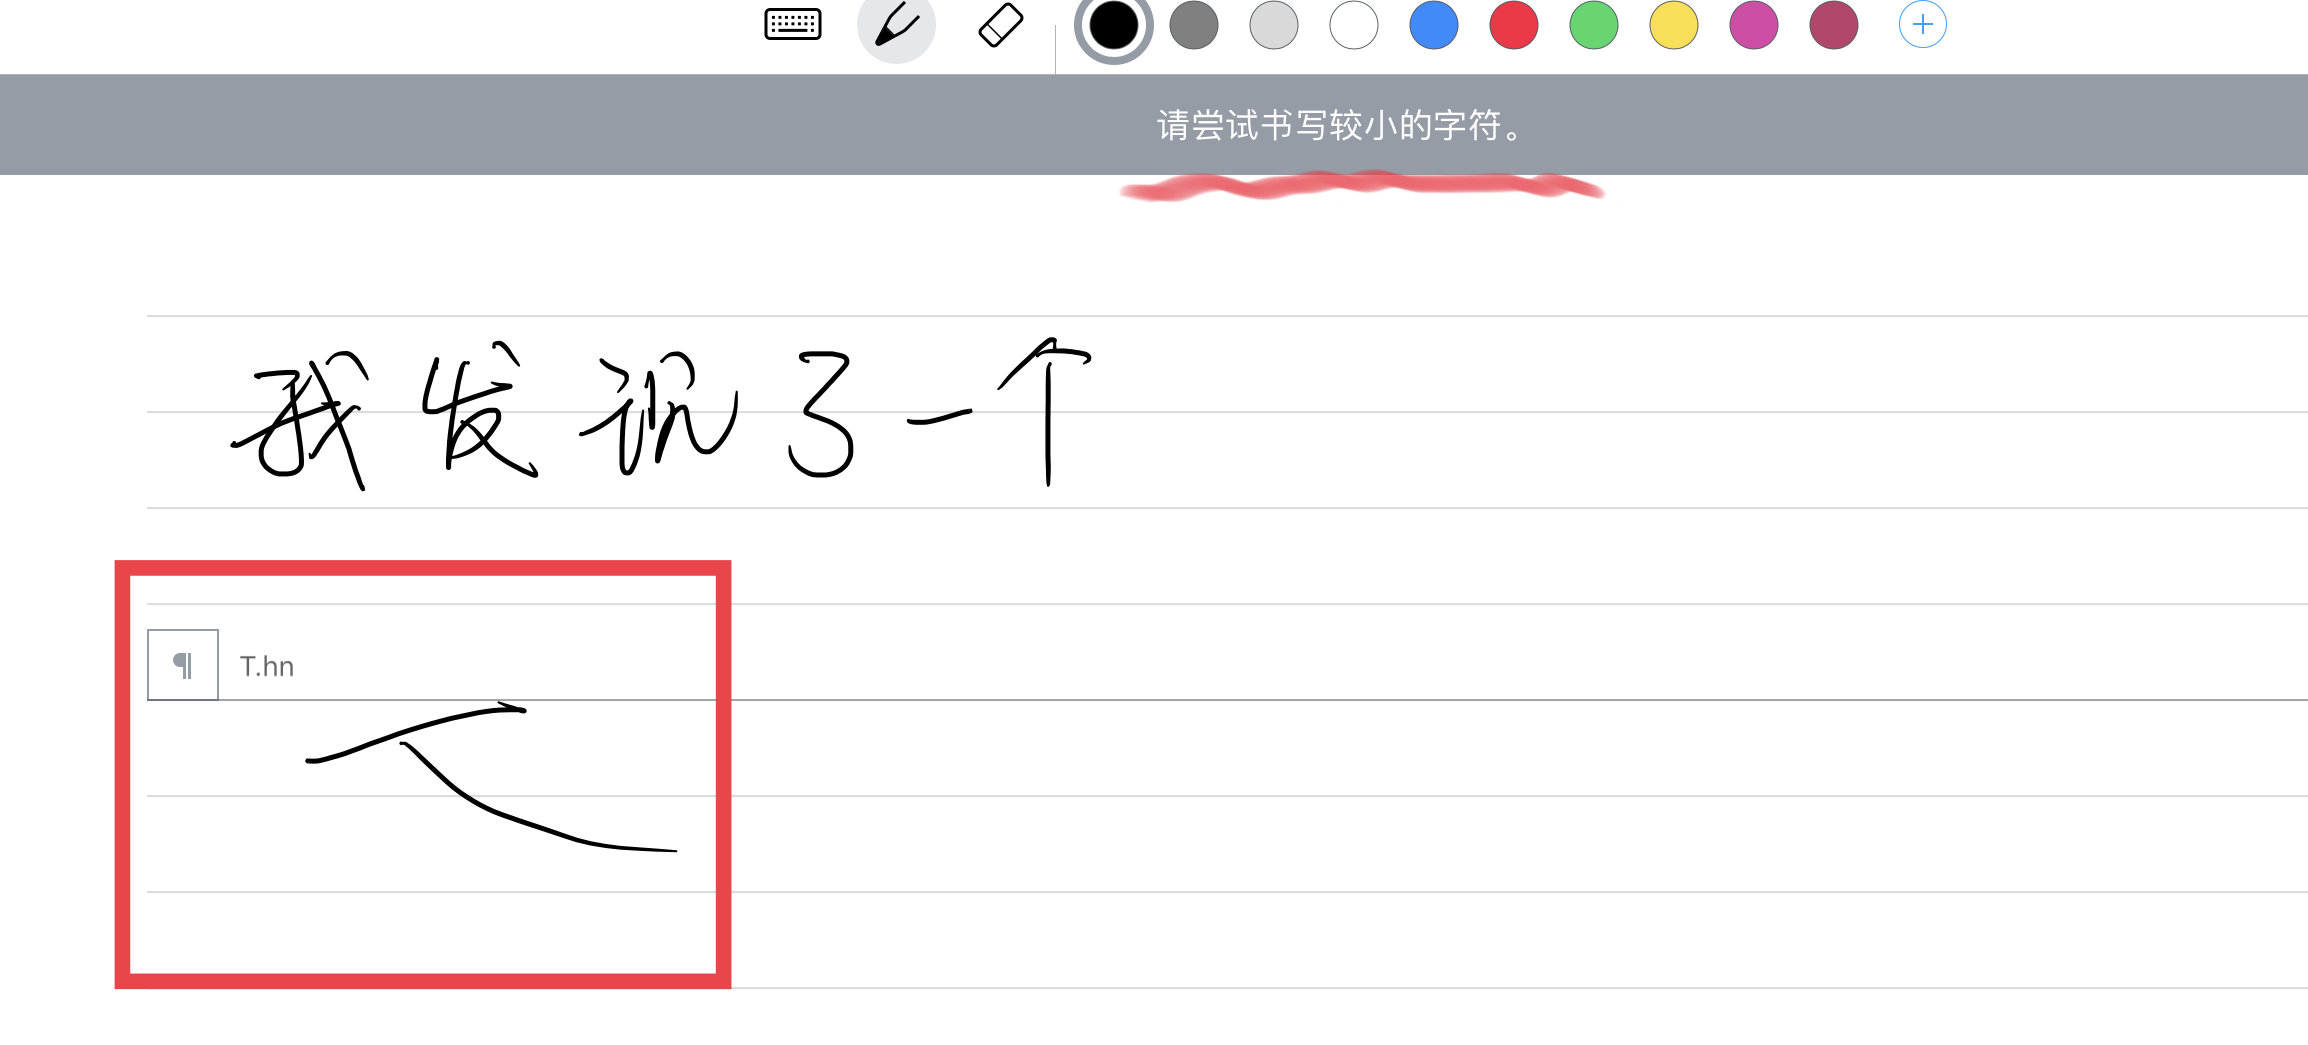 请尝试书写较小的字符。
我发现了一个
¶ T.hn